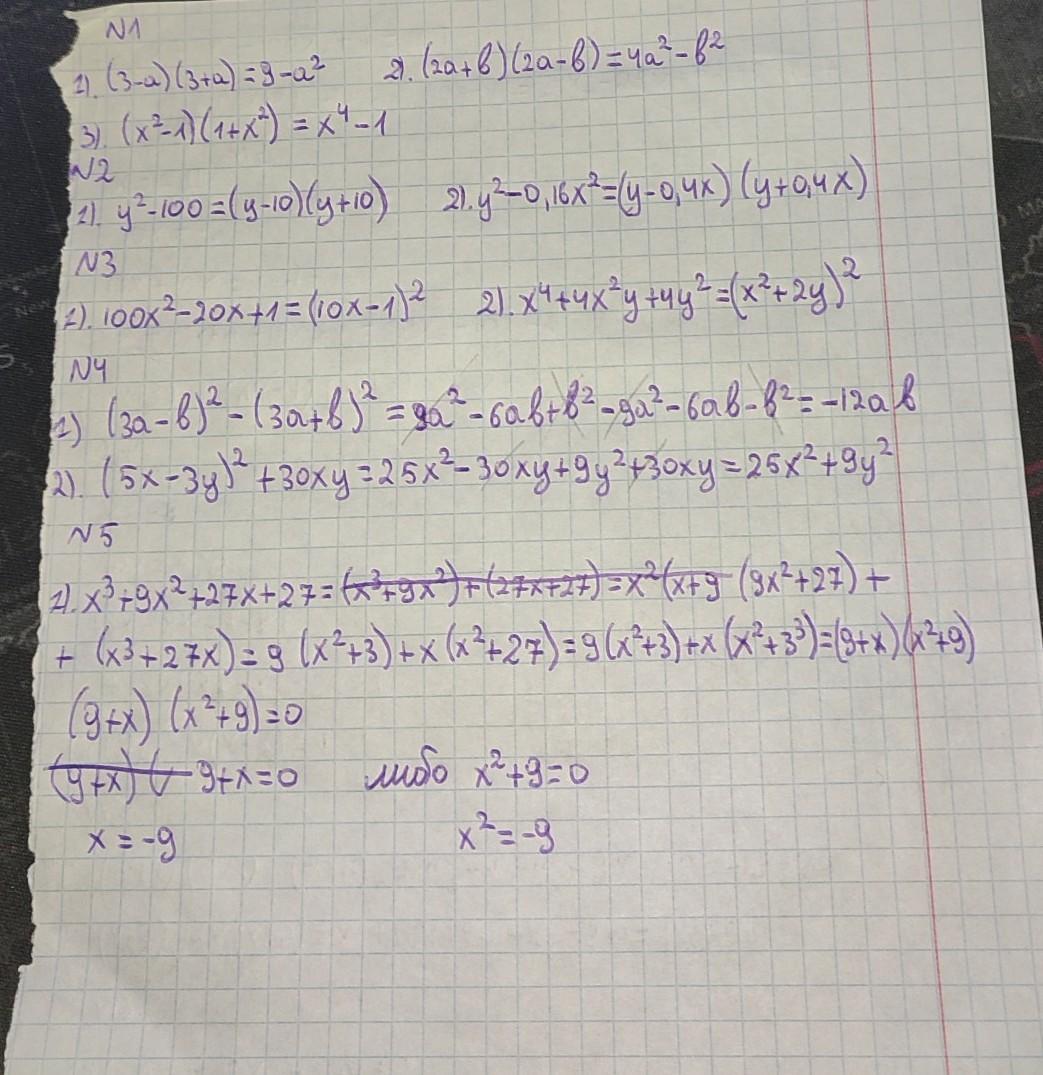 N1
1). (3-a)(3+a)=9-a² 2). (2a+b)(2a-b)=4a²-b²
3). (x²-1)(1+x²)=x⁴-1
N2
1). y²-100=(y-10)(y+10) 2). y²-0,16x²=(y-0,4x)(y+0,4x)
N3
1). 100x²-20x+1=(10x-1)² 2). x⁴+4x²y+4y²=(x²+2y)²
N4
1) (3a-b)²-(3a+b)²=9a²-6ab+b²-9a²-6ab-b²=-12ab
2). (5x-3y)²+30xy=25x²-30xy+9y²+30xy=25x²+9y²
N5
1). x³+9x²+27x+27=(x³+9x²)+(27x+27)=x²(x+9 (9x²+27)+
+ (x³+27x)=9(x²+3)+x(x²+27)=9(x²+3)+x(x²+3³)=(9+x)(x²+9)
(9+x)(x²+9)=0
(9+x)( 9+x=0 либо x²+9=0
x=-9 x²=-9